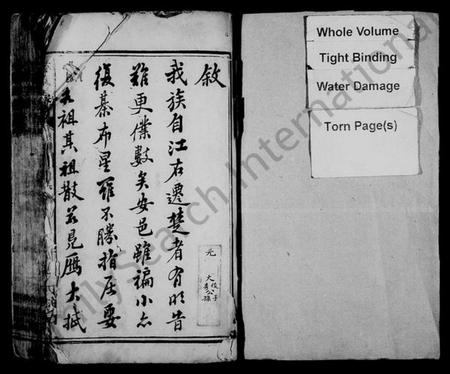 敘
我族自江右遷楚者有明昔
難更僕數矣安邑雖褊小亦
復綦布星羅不勝指屈要
各祖其祖散若晨雁大抵
Whole Volume
Tight Binding
Water Damage
Torn Page(s)
Family Search International